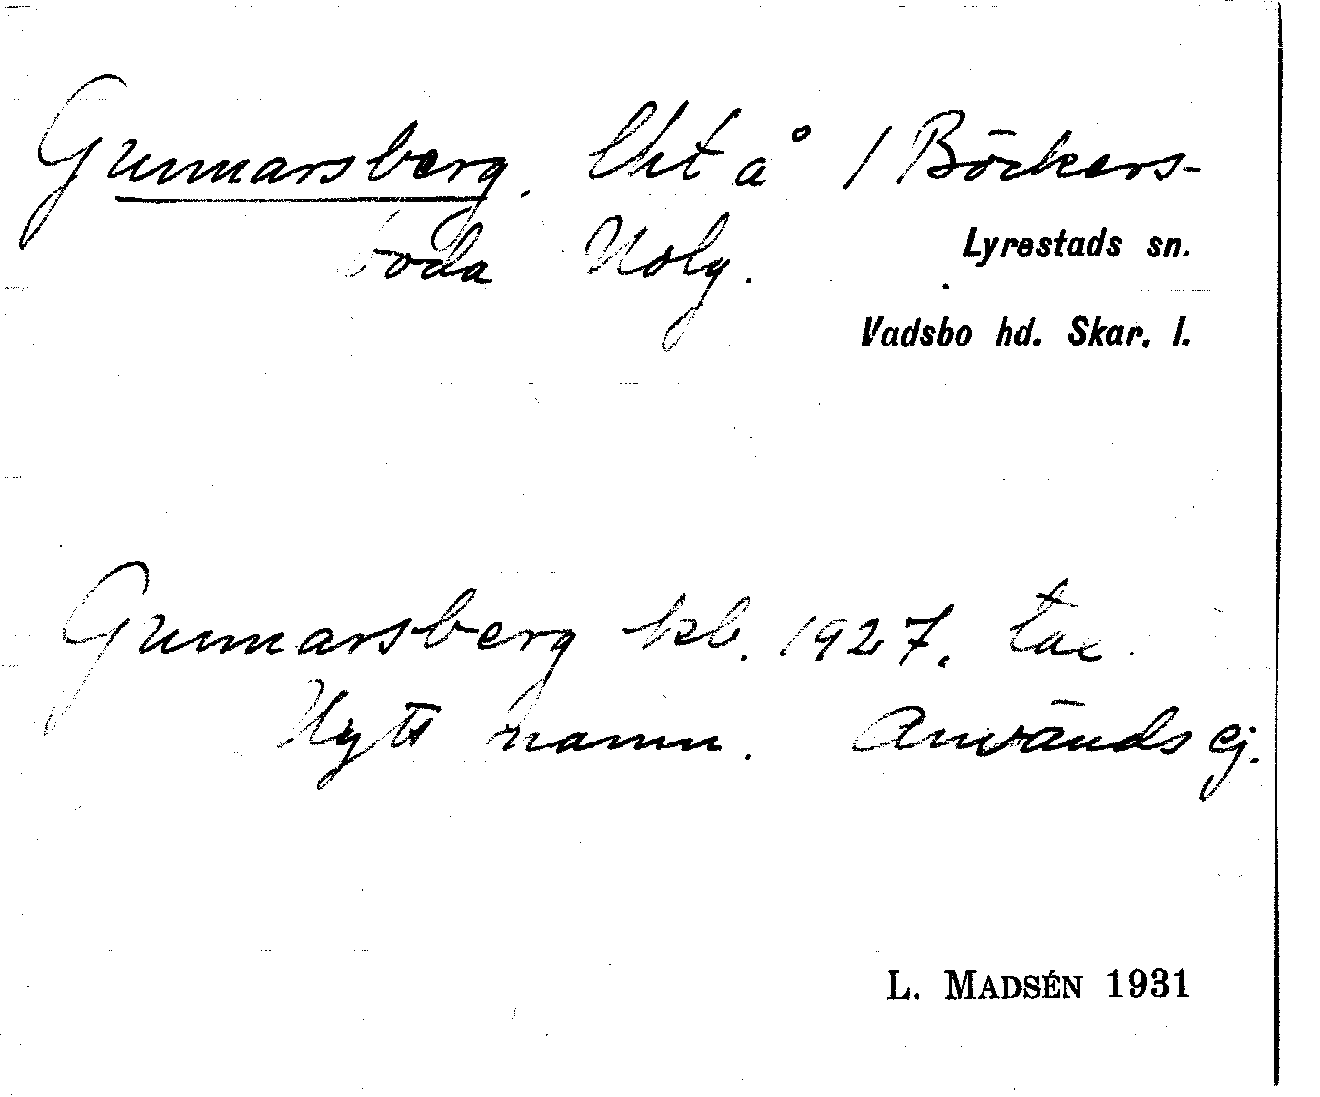 Gunnarsberg. lht å 1 Böckers-
boda Nolg.
Lyrestads sn.
Vadsbo hd. Skar. l.
Gunnarsberg kb. 1927.
Nytt namn. Används ej.
L. MADSÉN 1931